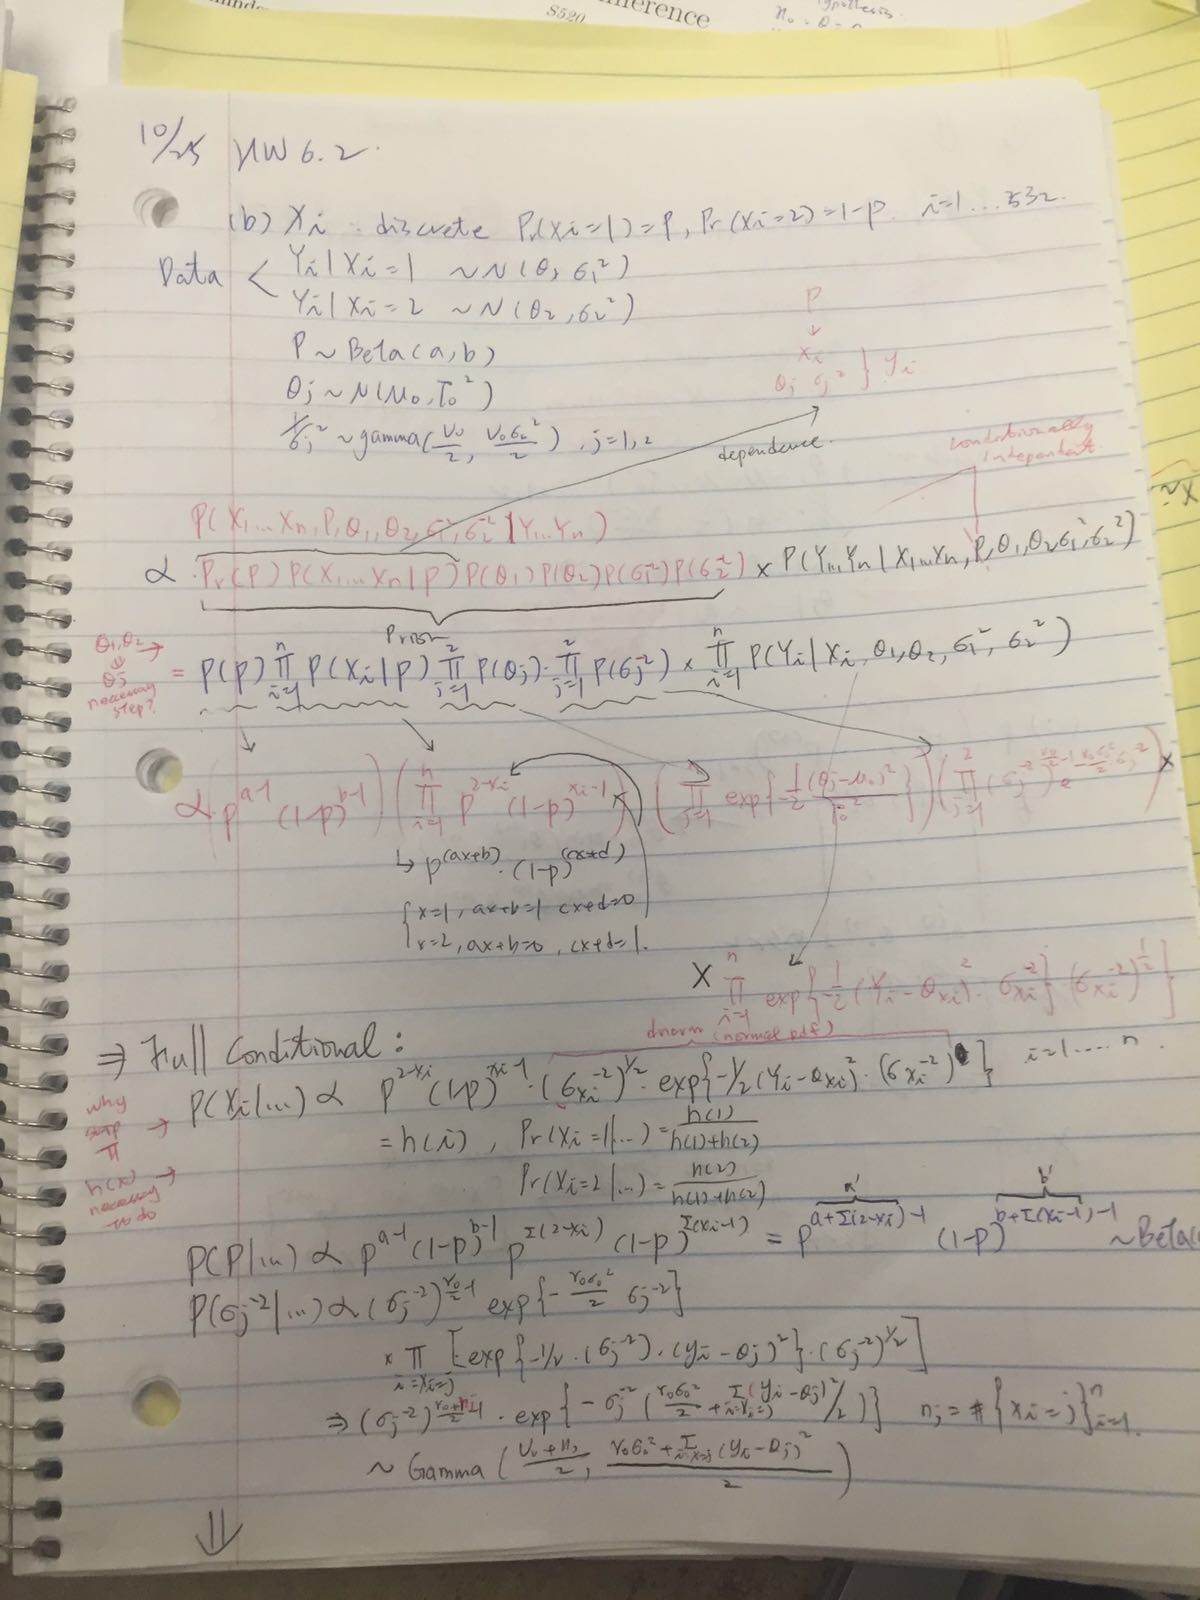 S520
10/25 HW 6.2.
(b) Xi : discrete Pr(Xi=1)=P, Pr(Xi=2)=1-P. i=1...532.
Data < Yi|Xi=1 ~N(θ1, σ1²)
Yi|Xi=2 ~N(θ2, σ2²)
P~Beta(a,b)
θj ~N(μ0, τ0²)
1/σj² ~gamma(ν0/2, ν0σ0²/2), j=1,2
P
↓
xi
θj σj² } yi
dependence.
conditionally
independent.
P(X1...Xn, P, θ1, θ2, σ1², σ2² | Y1...Yn)
∝ Pr(P) P(X1...Xn|P) P(θ1)P(θ2)P(σ1²)P(σ2²) × P(Y1...Yn | X1...Xn, P, θ1, θ2 σ1², σ2²)
Prior
θ1,θ2 →
↓
θj
necessary
step?
= P(P) ∏_{i=1}^n P(Xi|P) ∏_{j=1}^2 P(θj) · ∏_{j=1}^2 P(σj²) × ∏_{i=1}^n P(Yi|Xi, θ1, θ2, σ1², σ2²)
∝ (P^{a-1} (1-P)^{b-1}) (∏_{i=1}^n P^{2-xi} (1-P)^{xi-1}) (∏_{j=1}^2 exp{-1/2 (θj-μ0)²/τ0²}) (∏_{j=1}^2 (σj^{-2})^{ν0/2-1} e^{-ν0σ0²/2 σj^{-2}}) ×
↳ P^{(ax+b)} · (1-P)^{(cx+d)}
{ x=1, ax+b=1 cx+d=0
x=2, ax+b=0, cx+d=1.
× ∏_{i=1}^n exp{-1/2 (Yi - θxi)² · σxi^{-2}} (σxi^{-2})^{1/2}}
dnorm (normal pdf)
⇒ Full Conditional:
P(Xi|...) ∝ P^{2-xi} (1-P)^{xi-1} · (σxi^{-2})^{1/2} · exp{-1/2 (Yi-θxi)² · (σxi^{-2})} i=1....n.
why
∏
→
= h(i), Pr(Xi=1|...) = h(1)/(h(1)+h(2))
h(x) →
necessary
to do
Pr(Xi=2|...) = h(2)/(h(1)+h(2))
a' b'
P(P|...) ∝ P^{a-1} (1-P)^{b-1} P^{Σ(2-xi)} (1-P)^{Σ(xi-1)} = P^{a+Σ(2-xi)-1} (1-P)^{b+Σ(xi-1)-1} ~Beta(
P(σj^{-2}|...) ∝ (σj^{-2})^{ν0/2-1} exp{-ν0σ0²/2 σj^{-2}}
× ∏_{i:xi=j} [exp{-1/2 · (σj^{-2}) · (yi-θj)²} · (σj^{-2})^{1/2}]
⇒ (σj^{-2})^{(ν0+nj)/2-1} · exp{-σj^{-2} (ν0σ0²/2 + Σ_{i:xi=j}(yi-θj)²/2)} nj = #{xi=j}_{i=1}^n.
~ Gamma((ν0+nj)/2, (ν0σ0²+Σ_{i:xi=j}(yi-θj)²)/2)
⇓